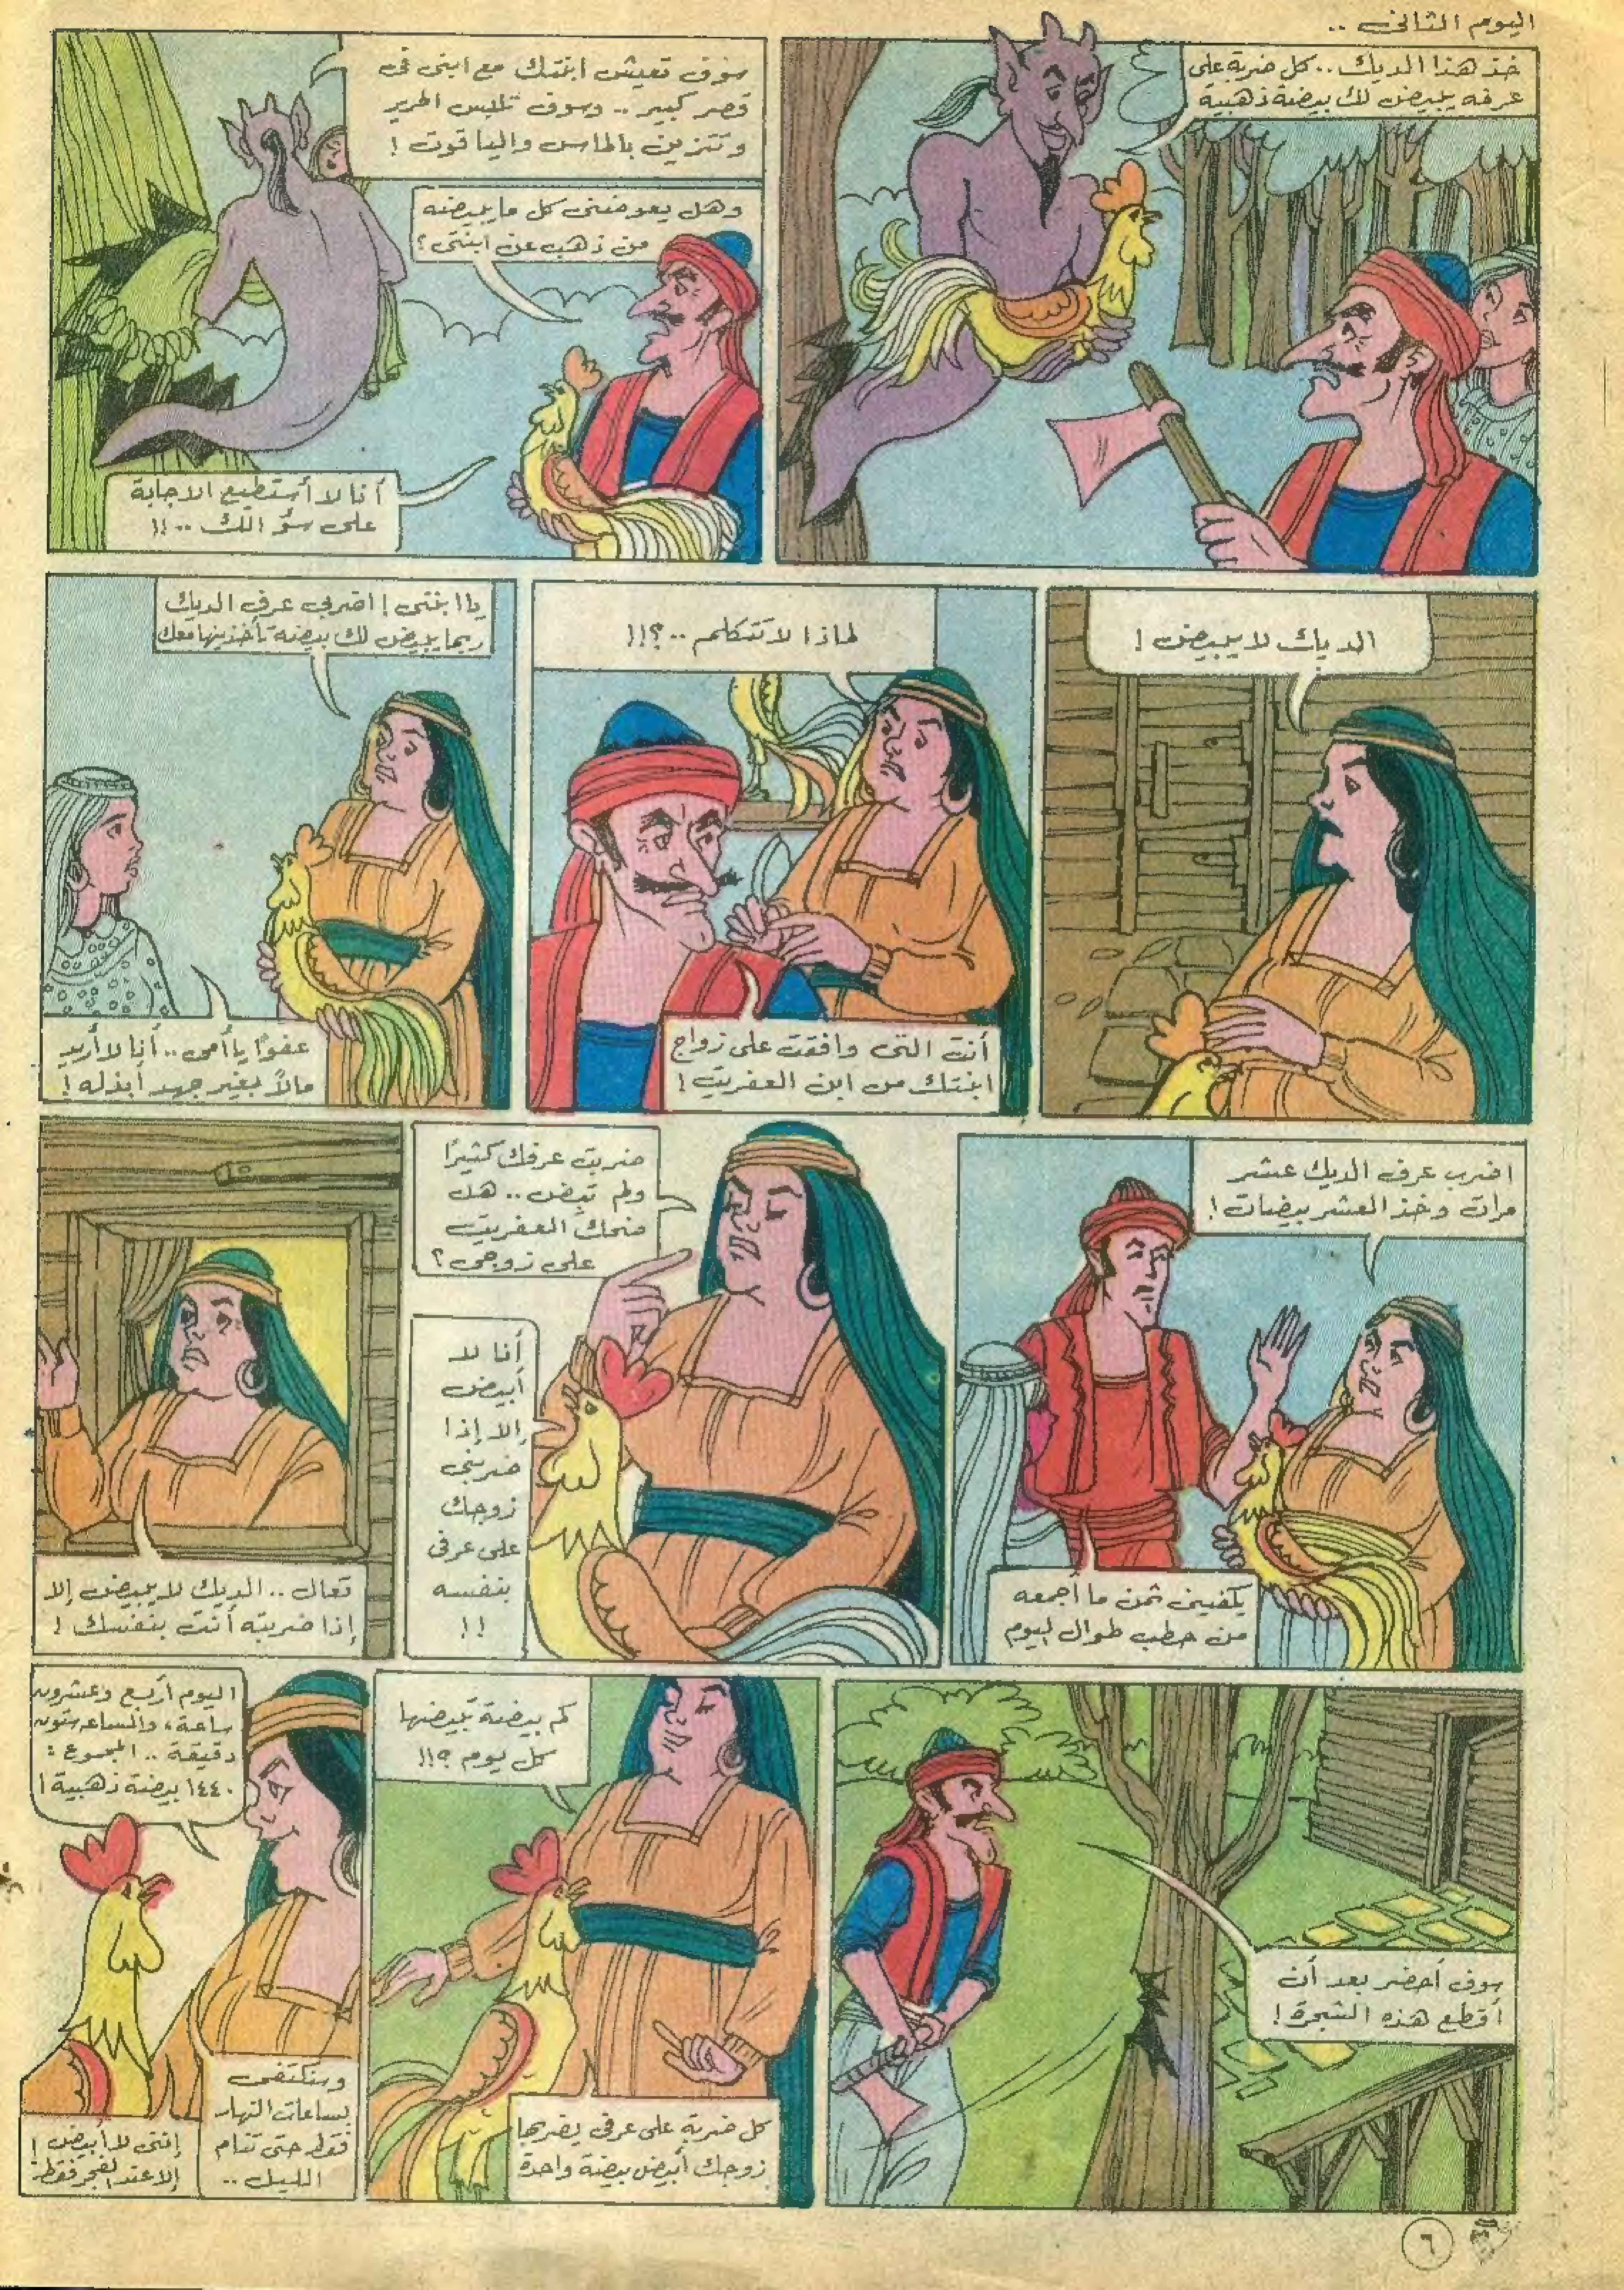 اليوم الثانى ..
خذ هذا الديك .. كل ضربة على
عرفه يبيض لك بيضة ذهبية
سوف تعيش ابنتك مع ابنى فى
قصر كبير .. وسوف تلبس الحرير
وتتزين بالماس والياقوت !
وهل يعوضنى كل ما يبيضه
من ذهب عن ابنتى ؟
أنا لا أستطيع الاجابة
على سؤالك ..!!
الديك لا يبيض !
لماذا لا تتكلم ..؟!!
أنت التى وافقت على زواج
ابنتك من ابن العفريت !
يا ابنتى ! اضربى عرف الديك
ربما يبيض لك بيضة تأخذينها معك
عفوًا يا أمى .. أنا لا أريد
مالاً بغير جهد أبذله !
اضرب عرف الديك عشر
مرات وخذ العشر بيضات !
يكفينى ثمن ما أجمعه
من حطب طوال اليوم
ضربت عرفك كثيرًا
ولم تبض .. هل
ضحك العفريت
على زوجى ؟
أنا لا
أبيض
إلا إذا
ضربنى
زوجك
على عرفى
بنفسه
!!
تعال .. الديك لا يبيض إلا
إذا ضربته أنت بنفسك !
سوف أحضر بعد أن
أقطع هذه الشجرة !
كم بيضة تبيضها
كل يوم ؟!!
كل ضربة على عرفى يضربها
زوجك أبيض بيضة واحدة
اليوم أربع وعشرون
ساعة، والساعة ستون
دقيقة .. المجموع :
١٤٤٠ بيضة ذهبية !
وسنكتفى
بساعات النهار
فقط حتى تنام
الليل ..
إننى لا أبيض !
إلا عند الفجر فقط :
٦